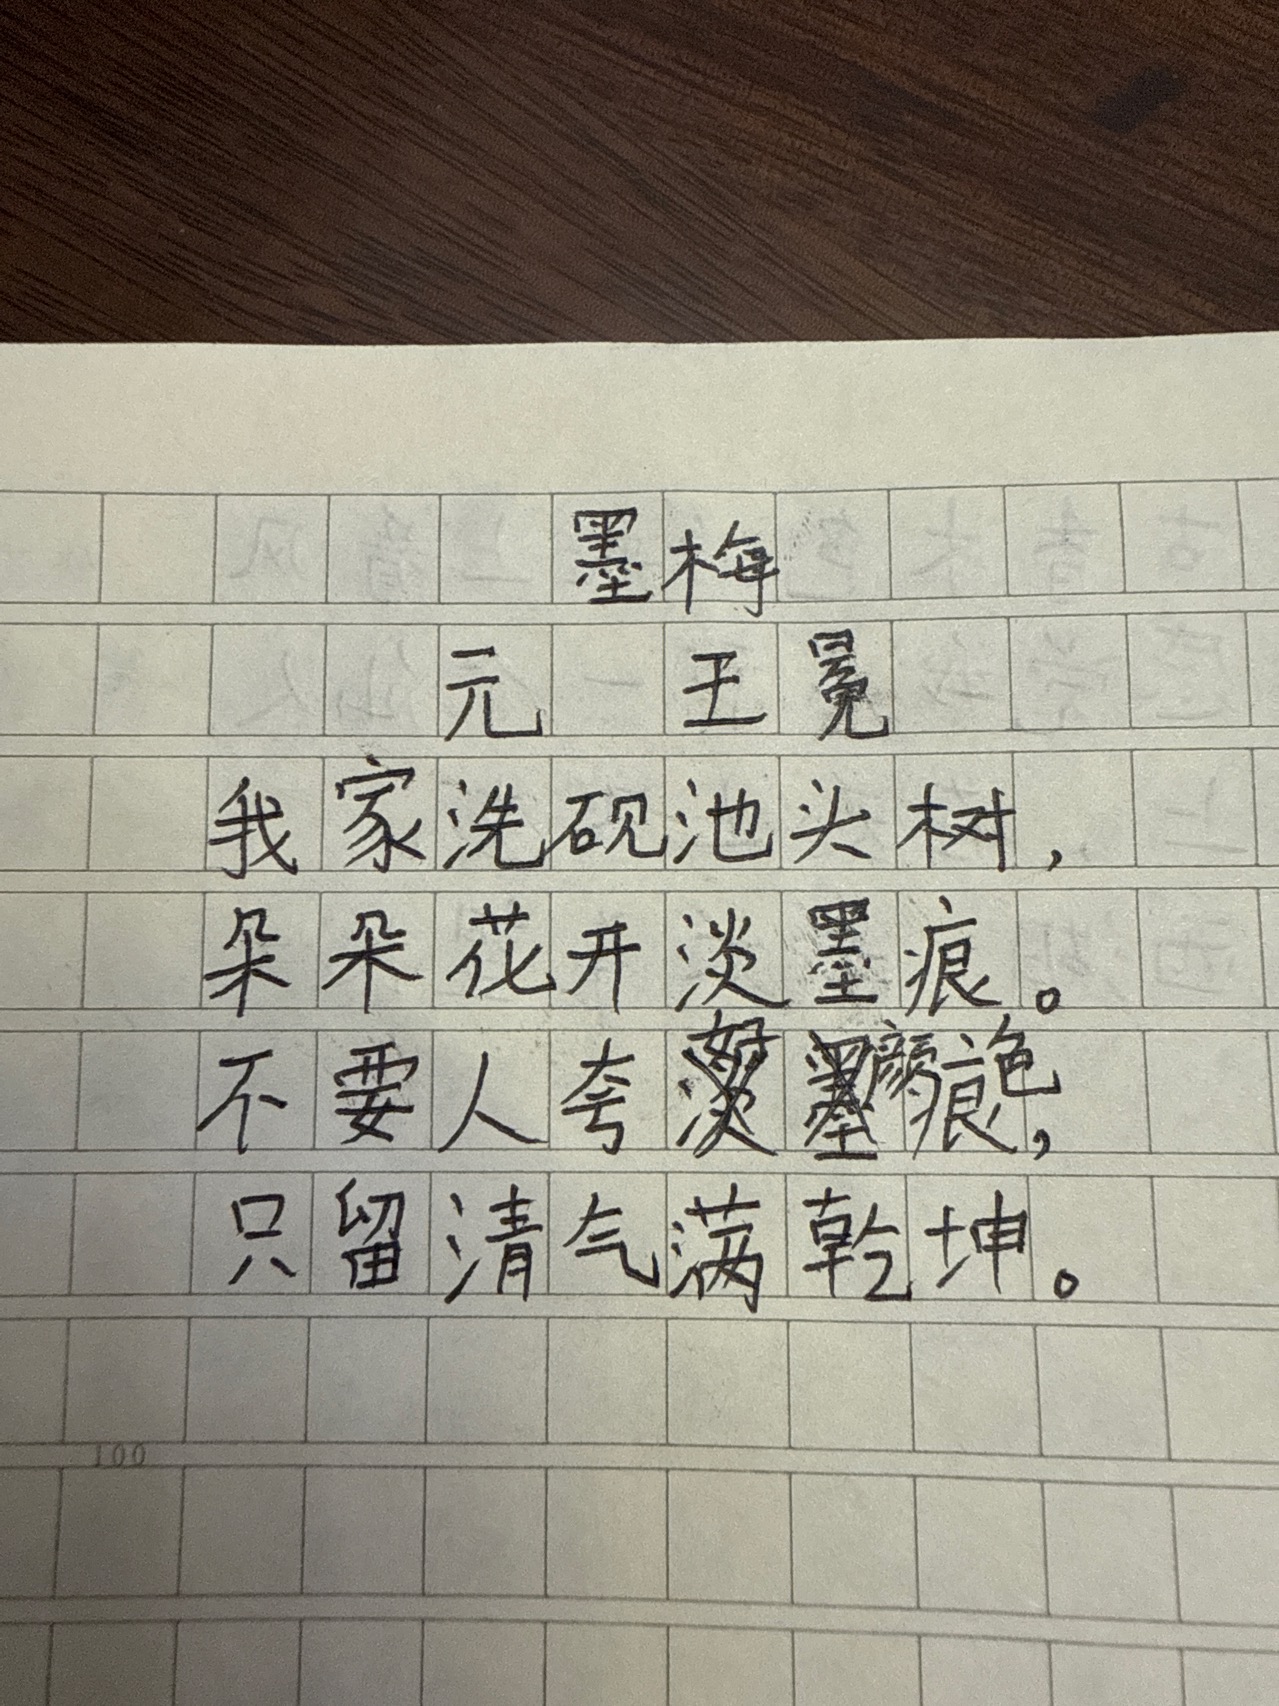 墨梅
元 王冕
我家洗砚池头树，
朵朵花开淡墨痕。
不要人夸好颜色，
只留清气满乾坤。
100